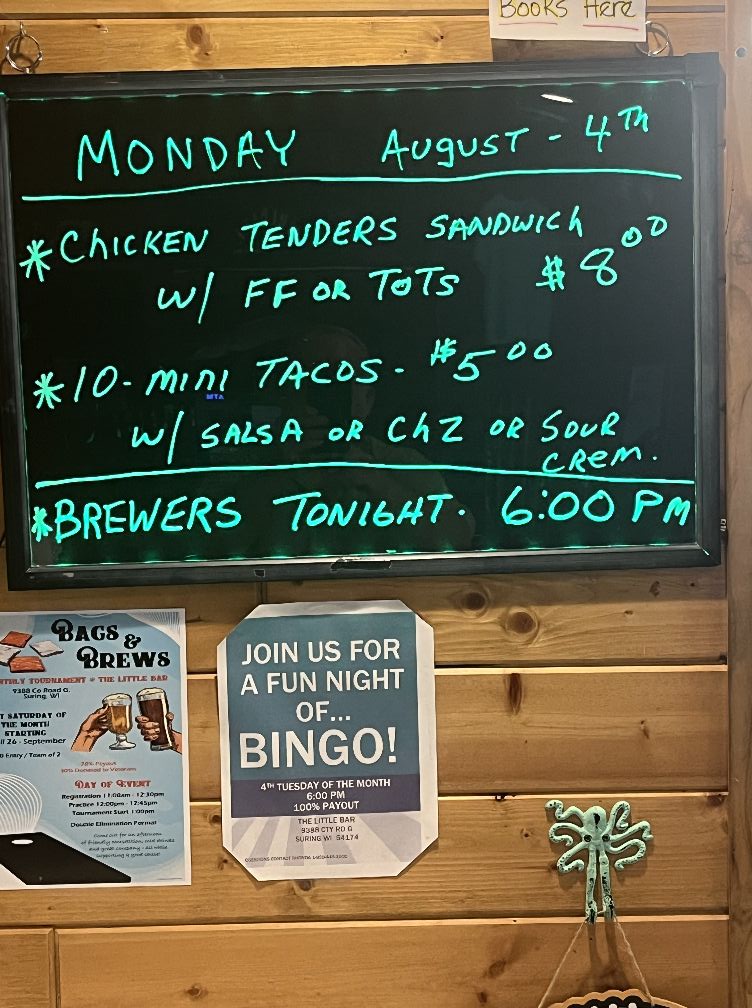 Books Here
MONDAY AUGUST - 4TH
*CHICKEN TENDERS SANDWICH
W/ FF OR TOTS $8.00
*10-MINI TACOS- $5.00
MTA
W/ SALSA OR CHZ OR SOUR
CREM.
*BREWERS TONIGHT. 6:00 PM
BAGS &
BREWS
TOURNAMENT @ THE LITTLE BAR
9388 Co Road G,
Suring, WI
SATURDAY OF
THE MONTH
STARTING
26 - September
Entry / Team of 2
Payout
Donated to Veterans
DAY OF EVENT
Registration 11:00am - 12:30pm
Practice 12:00pm - 12:45pm
Tournament Start 1:00pm
Double Elimination Format
Come out for an afternoon
of friendly competition, cold drinks
and great company - all while
supporting a great cause!
JOIN US FOR
A FUN NIGHT
OF...
BINGO!
4TH TUESDAY OF THE MONTH
6:00 PM
100% PAYOUT
THE LITTLE BAR
9388 CTY RD G
SURING WI 54174
QUESTIONS CONTACT